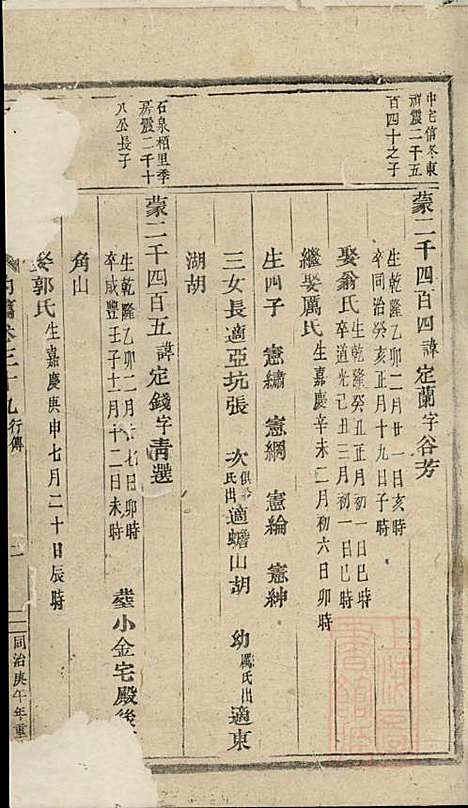 中宅信冬東
祠震二千五
百四十之子
蒙二千四百四諱定蘭字谷芳
生乾隆乙卯二月廿一日亥時
卒同治癸亥正月十九日子時
娶翁氏生乾隆癸丑正月初一日巳時
卒道光己丑三月初一日巳時
繼娶厲氏生嘉慶辛未二月初六日卯時
生四子 憲繡 憲綱 憲綸 憲紳
三女長適亞坑張 次俱
氏出適蟾山胡 幼厲氏出適東
湖胡
石泉栢里季
房震二千十
八公長子
蒙二千四百五諱定錢字青選
生乾隆乙卯二月 七日卯時
卒咸豐壬子十二月十二日未時
塟小金宅殿後
角山
娶郭氏生嘉慶庚申七月二十日辰時
內篇卷三十九行傳
二
同治庚午年重
上海圖書館藏